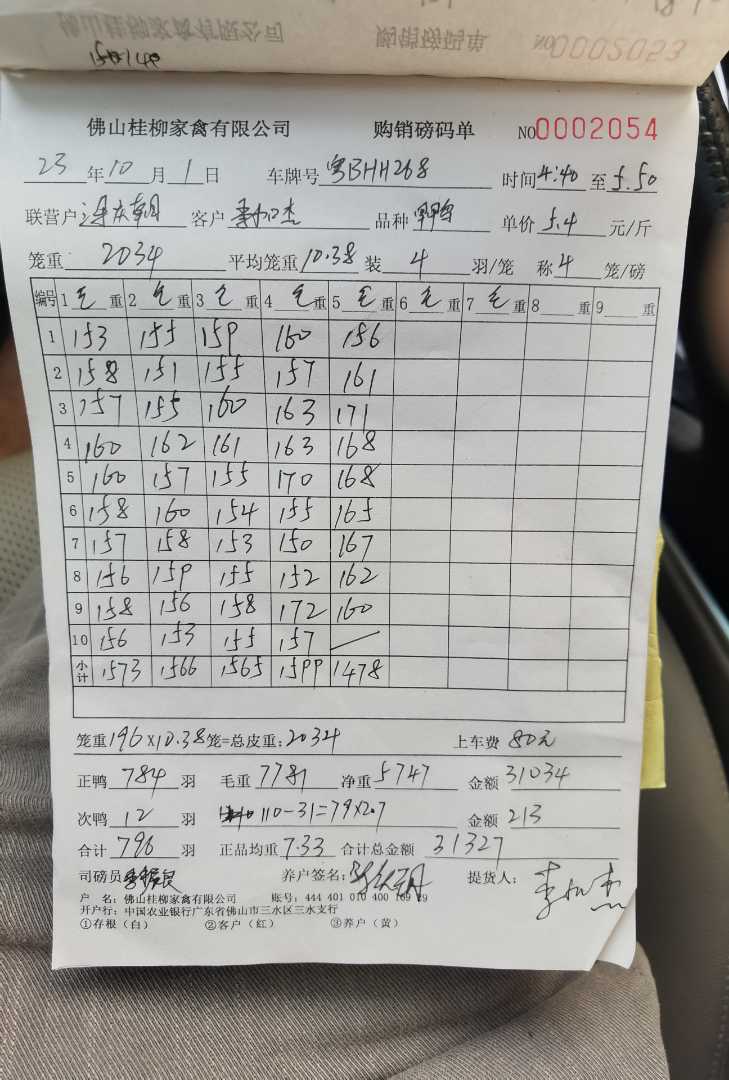 佛山桂柳家禽有限公司 购销磅码单 NO0002053
佛山桂柳家禽有限公司 购销磅码单 NO0002054
23年10月1日 车牌号粤BHH268 时间4:40至5.50
联营户 客户 品种 单价5.4元/斤
笼重2034 平均笼重10.38 装4羽/笼 称4笼/磅
编号 1毛重 2毛重 3毛重 4毛重 5毛重 6毛重 7毛重 8重 9重
1 153 155 159 160 156
2 158 151 155 157 161
3 157 155 160 163 171
4 160 162 161 163 168
5 160 157 155 170 168
6 158 160 154 155 165
7 157 158 153 150 167
8 156 159 155 152 162
9 158 156 158 172 160
10 156 153 155 157 /
小计 1573 1566 1565 1599 1478
笼重196×10.38笼=总皮重:2034 上车费80元
正鸭784羽 毛重7781 净重5747 金额31034
次鸭12羽 110-31=79×2.7 金额213
合计796羽 正品均重7.33 合计总金额31327
司磅员 养户签名: 提货人:
户 名:佛山桂柳家禽有限公司 账号:444 401 010 400 169 29
开户行:中国农业银行广东省佛山市三水区三水支行
①存根(白) ②客户(红) ③养户(黄)